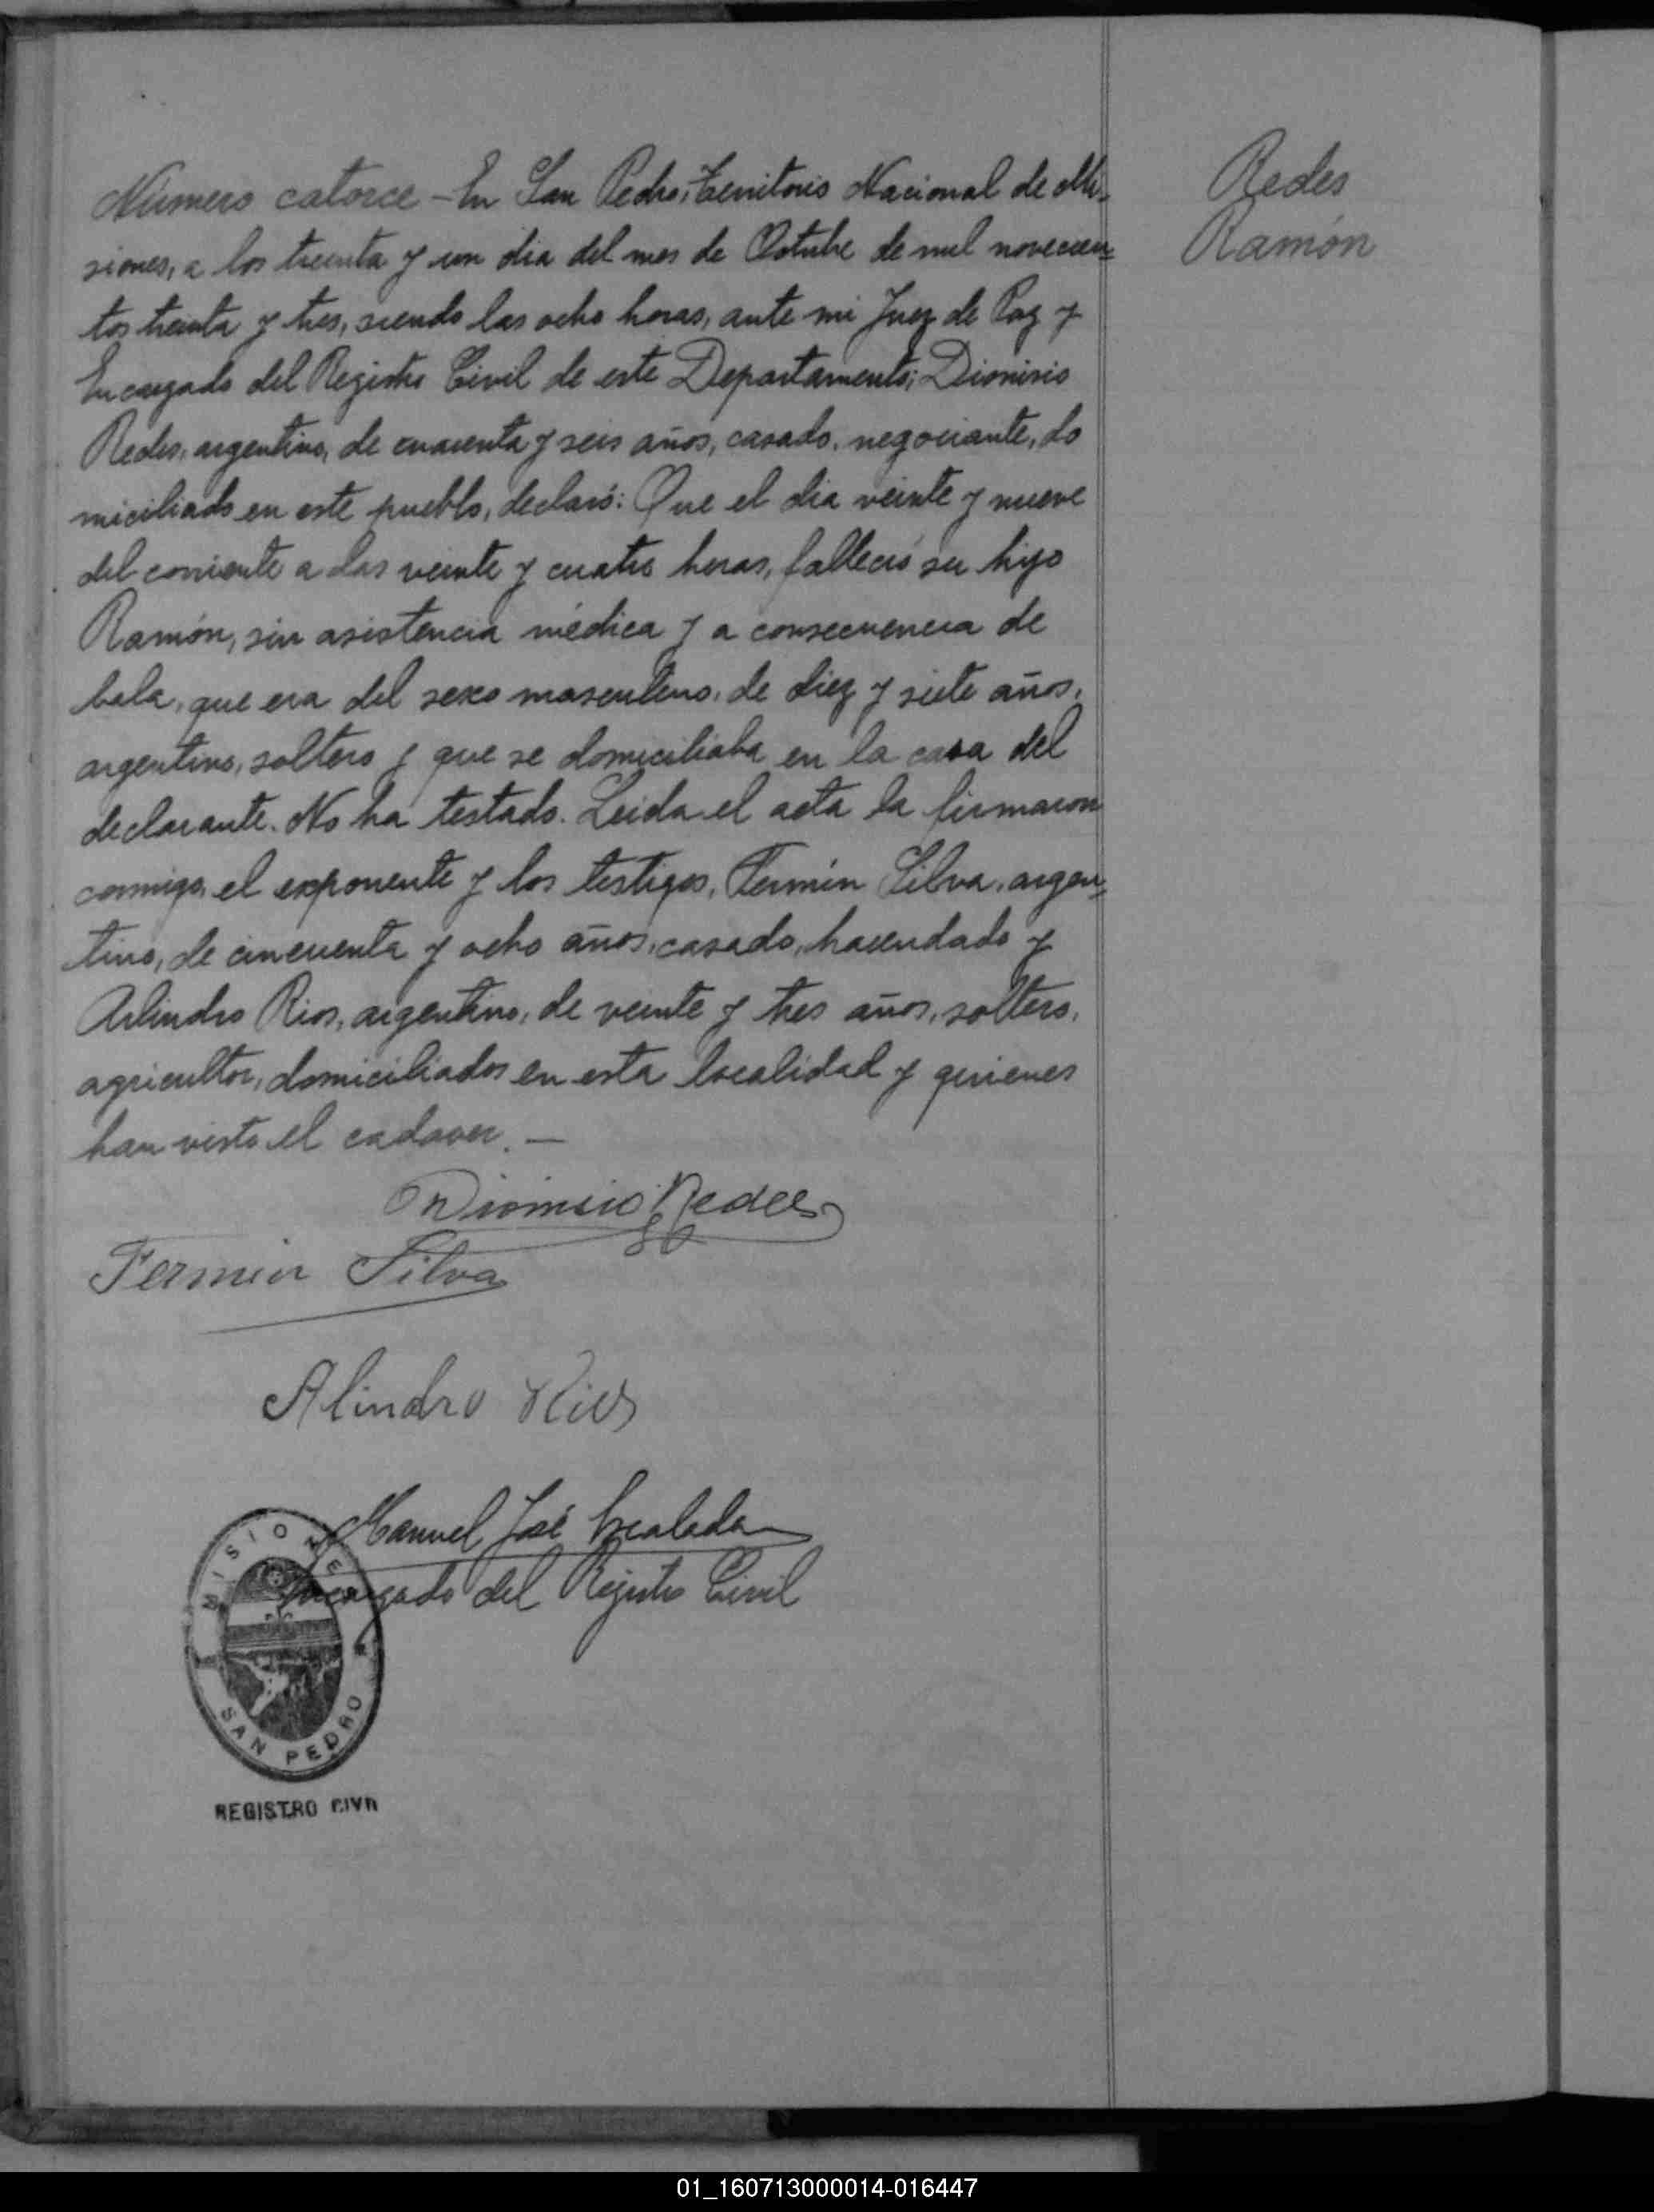 Redes
Ramón
Número catorce - En San Pedro, Territorio Nacional de Mi-
siones, a los treinta y un dia del mes de Octubre de mil novecien=
tos treinta y tres, siendo las ocho horas, ante mi Juez de Paz y
Encargado del Registro Civil de este Departamento; Dionisio
Redes, argentino, de cuarenta y seis años, casado, negociante, do
miciliado en este pueblo, declaró: Que el dia veinte y nueve
del corriente a las veinte y cuatro horas, falleció su hijo
Ramón, sin asistencia médica y a consecuencia de
bala, que era del sexo masculino, de diez y siete años,
argentino, soltero y que se domiciliaba en la casa del
declarante. No ha testado. Leida el acta la firmaron
conmigo, el exponente y los testigos, Fermín Silva, argen=
tino, de cincuenta y ocho años, casado, hacendado y
Arlindro Rios, argentino, de veinte y tres años, soltero,
agricultor, domiciliados en esta localidad y quienes
han visto el cadaver. —
Dionisio Redes
Fermin Silva
Alindro Rios
Manuel José
Encargado del Registro Civil
MISIONES
SAN PEDRO
REGISTRO CIVIL
01_160713000014-016447